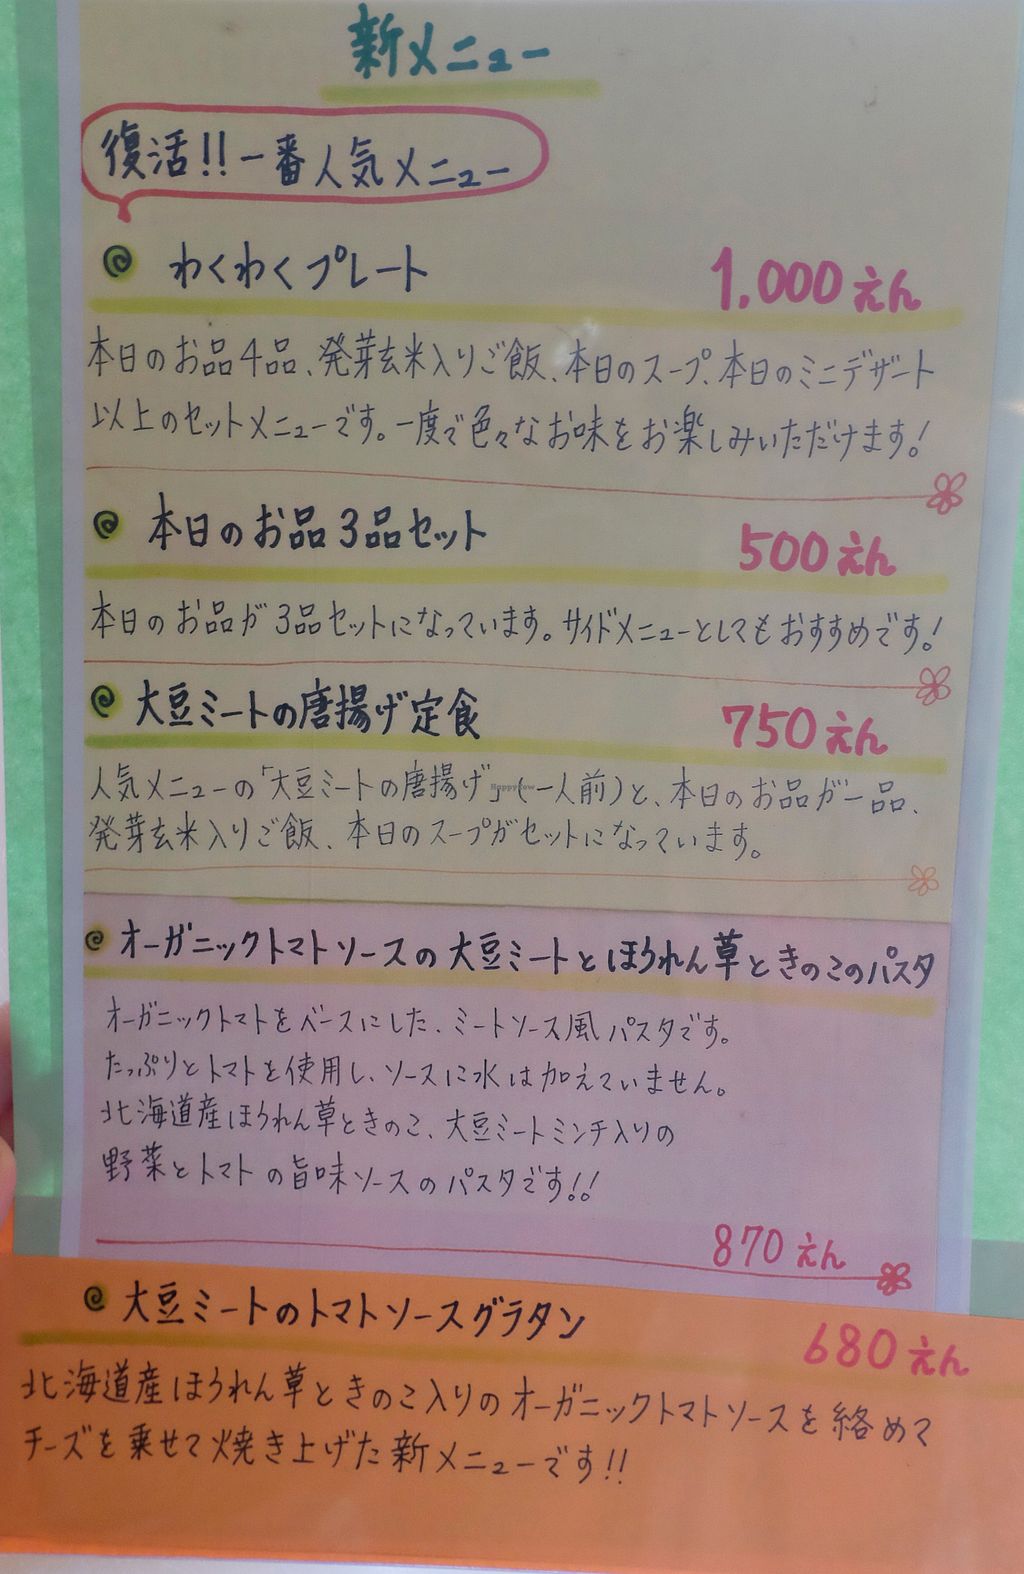 新メニュー
復活!!一番人気メニュー
わくわくプレート
1,000えん
本日のお品4品、発芽玄米入りご飯、本日のスープ、本日のミニデザート
以上のセットメニューです。一度で色々なお味をお楽しみいただけます!
本日のお品3品セット
500えん
本日のお品が3品セットになっています。サイドメニューとしてもおすすめです!
大豆ミートの唐揚げ定食
750えん
人気メニューの「大豆ミートの唐揚げ」(一人前)と、本日のお品が一品、
発芽玄米入りご飯、本日のスープがセットになっています。
HappyCow
オーガニックトマトソースの大豆ミートとほうれん草ときのこのパスタ
オーガニックトマトをベースにした、ミートソース風パスタです。
たっぷりとトマトを使用し、ソースに水は加えていません。
北海道産ほうれん草ときのこ、大豆ミートミンチ入りの
野菜とトマトの旨味ソースのパスタです!!
870えん
大豆ミートのトマトソースグラタン
680えん
北海道産ほうれん草ときのこ入りのオーガニックトマトソースを絡めて
チーズを乗せて焼き上げた新メニューです!!